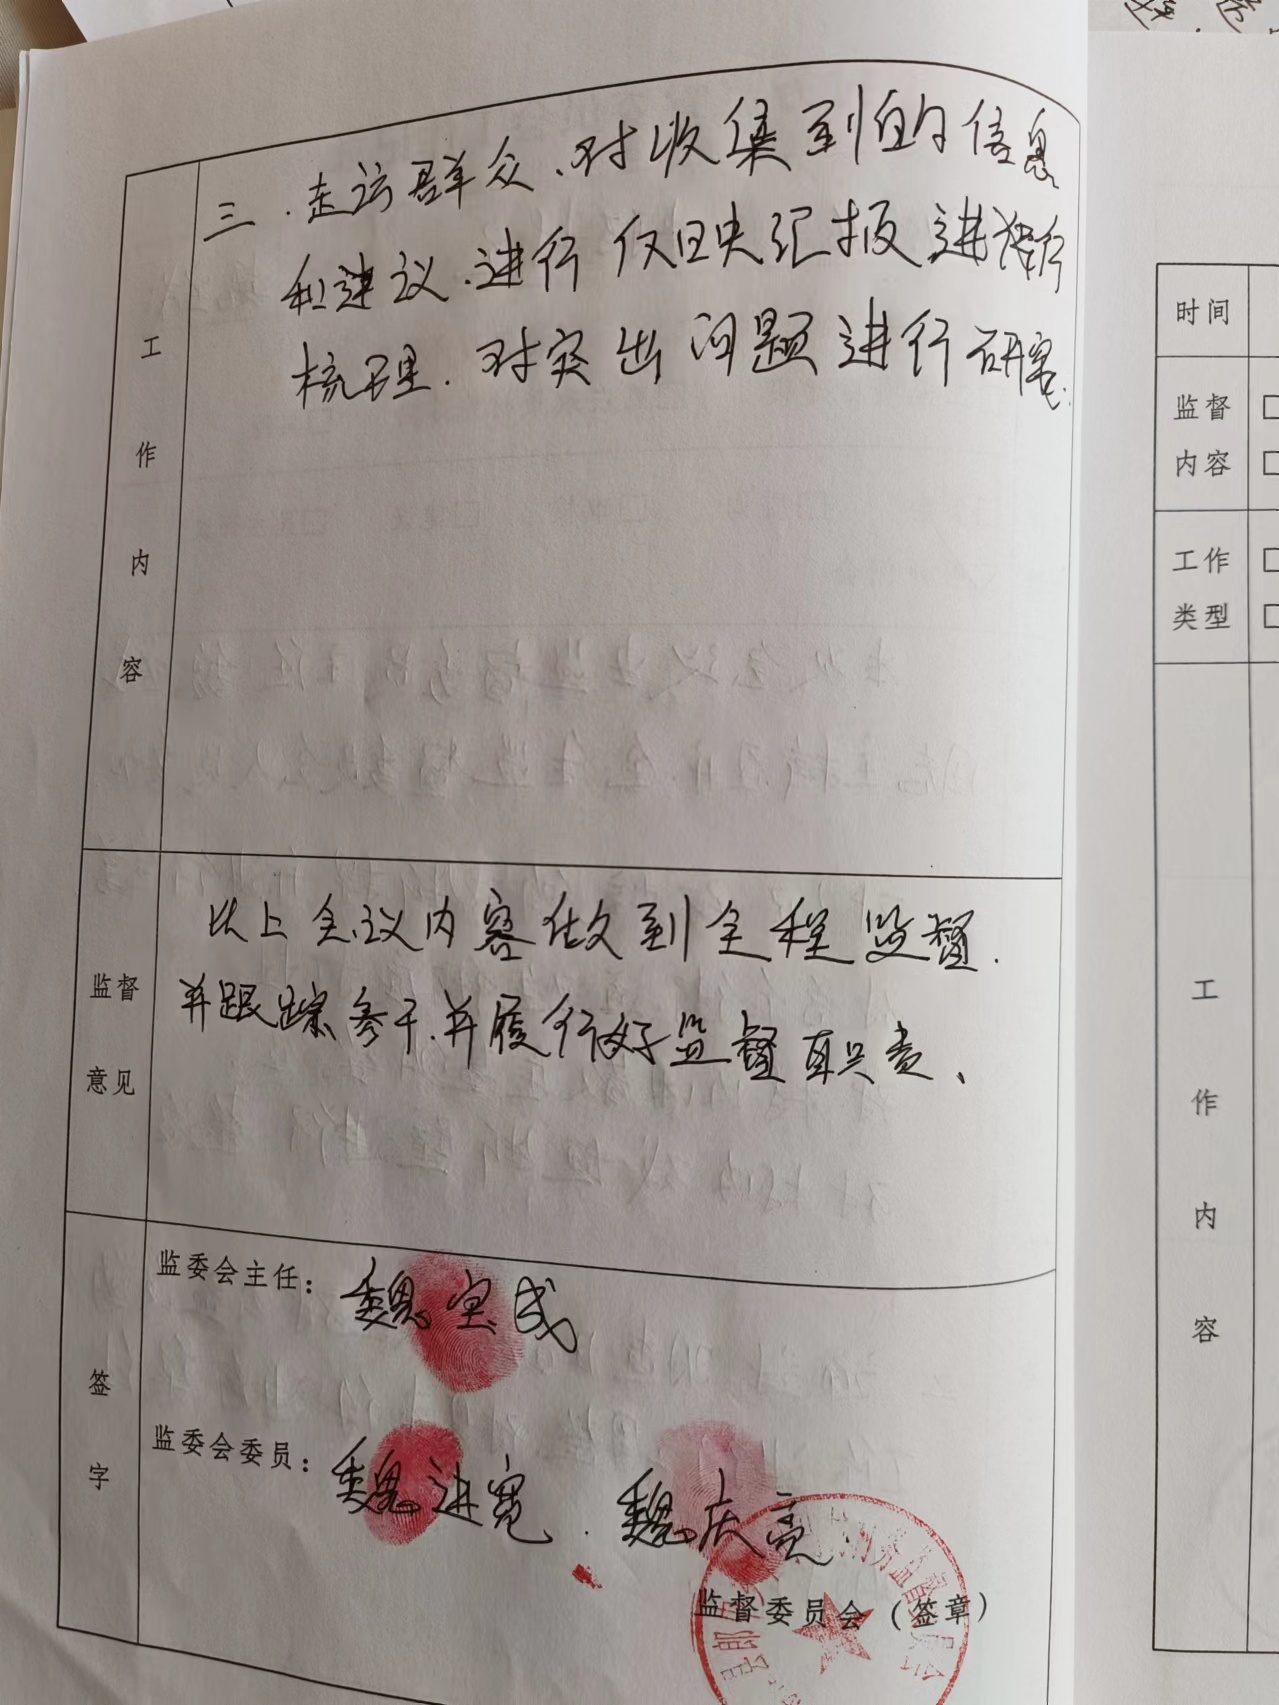 三.走访群众、对收集到的信息
和建议.进行仅映汇报进行
梳理.对突出问题进行研究.
工作内容
以上会议内容做到全程监督.
并跟踪参于.并履行好监督职责、
监督
意见
监委会主任：魏宝成
监委会委员：魏进宽.魏庆亮
签字
监督委员会（签章）
时间
监督
内容
工作
类型
工作内容